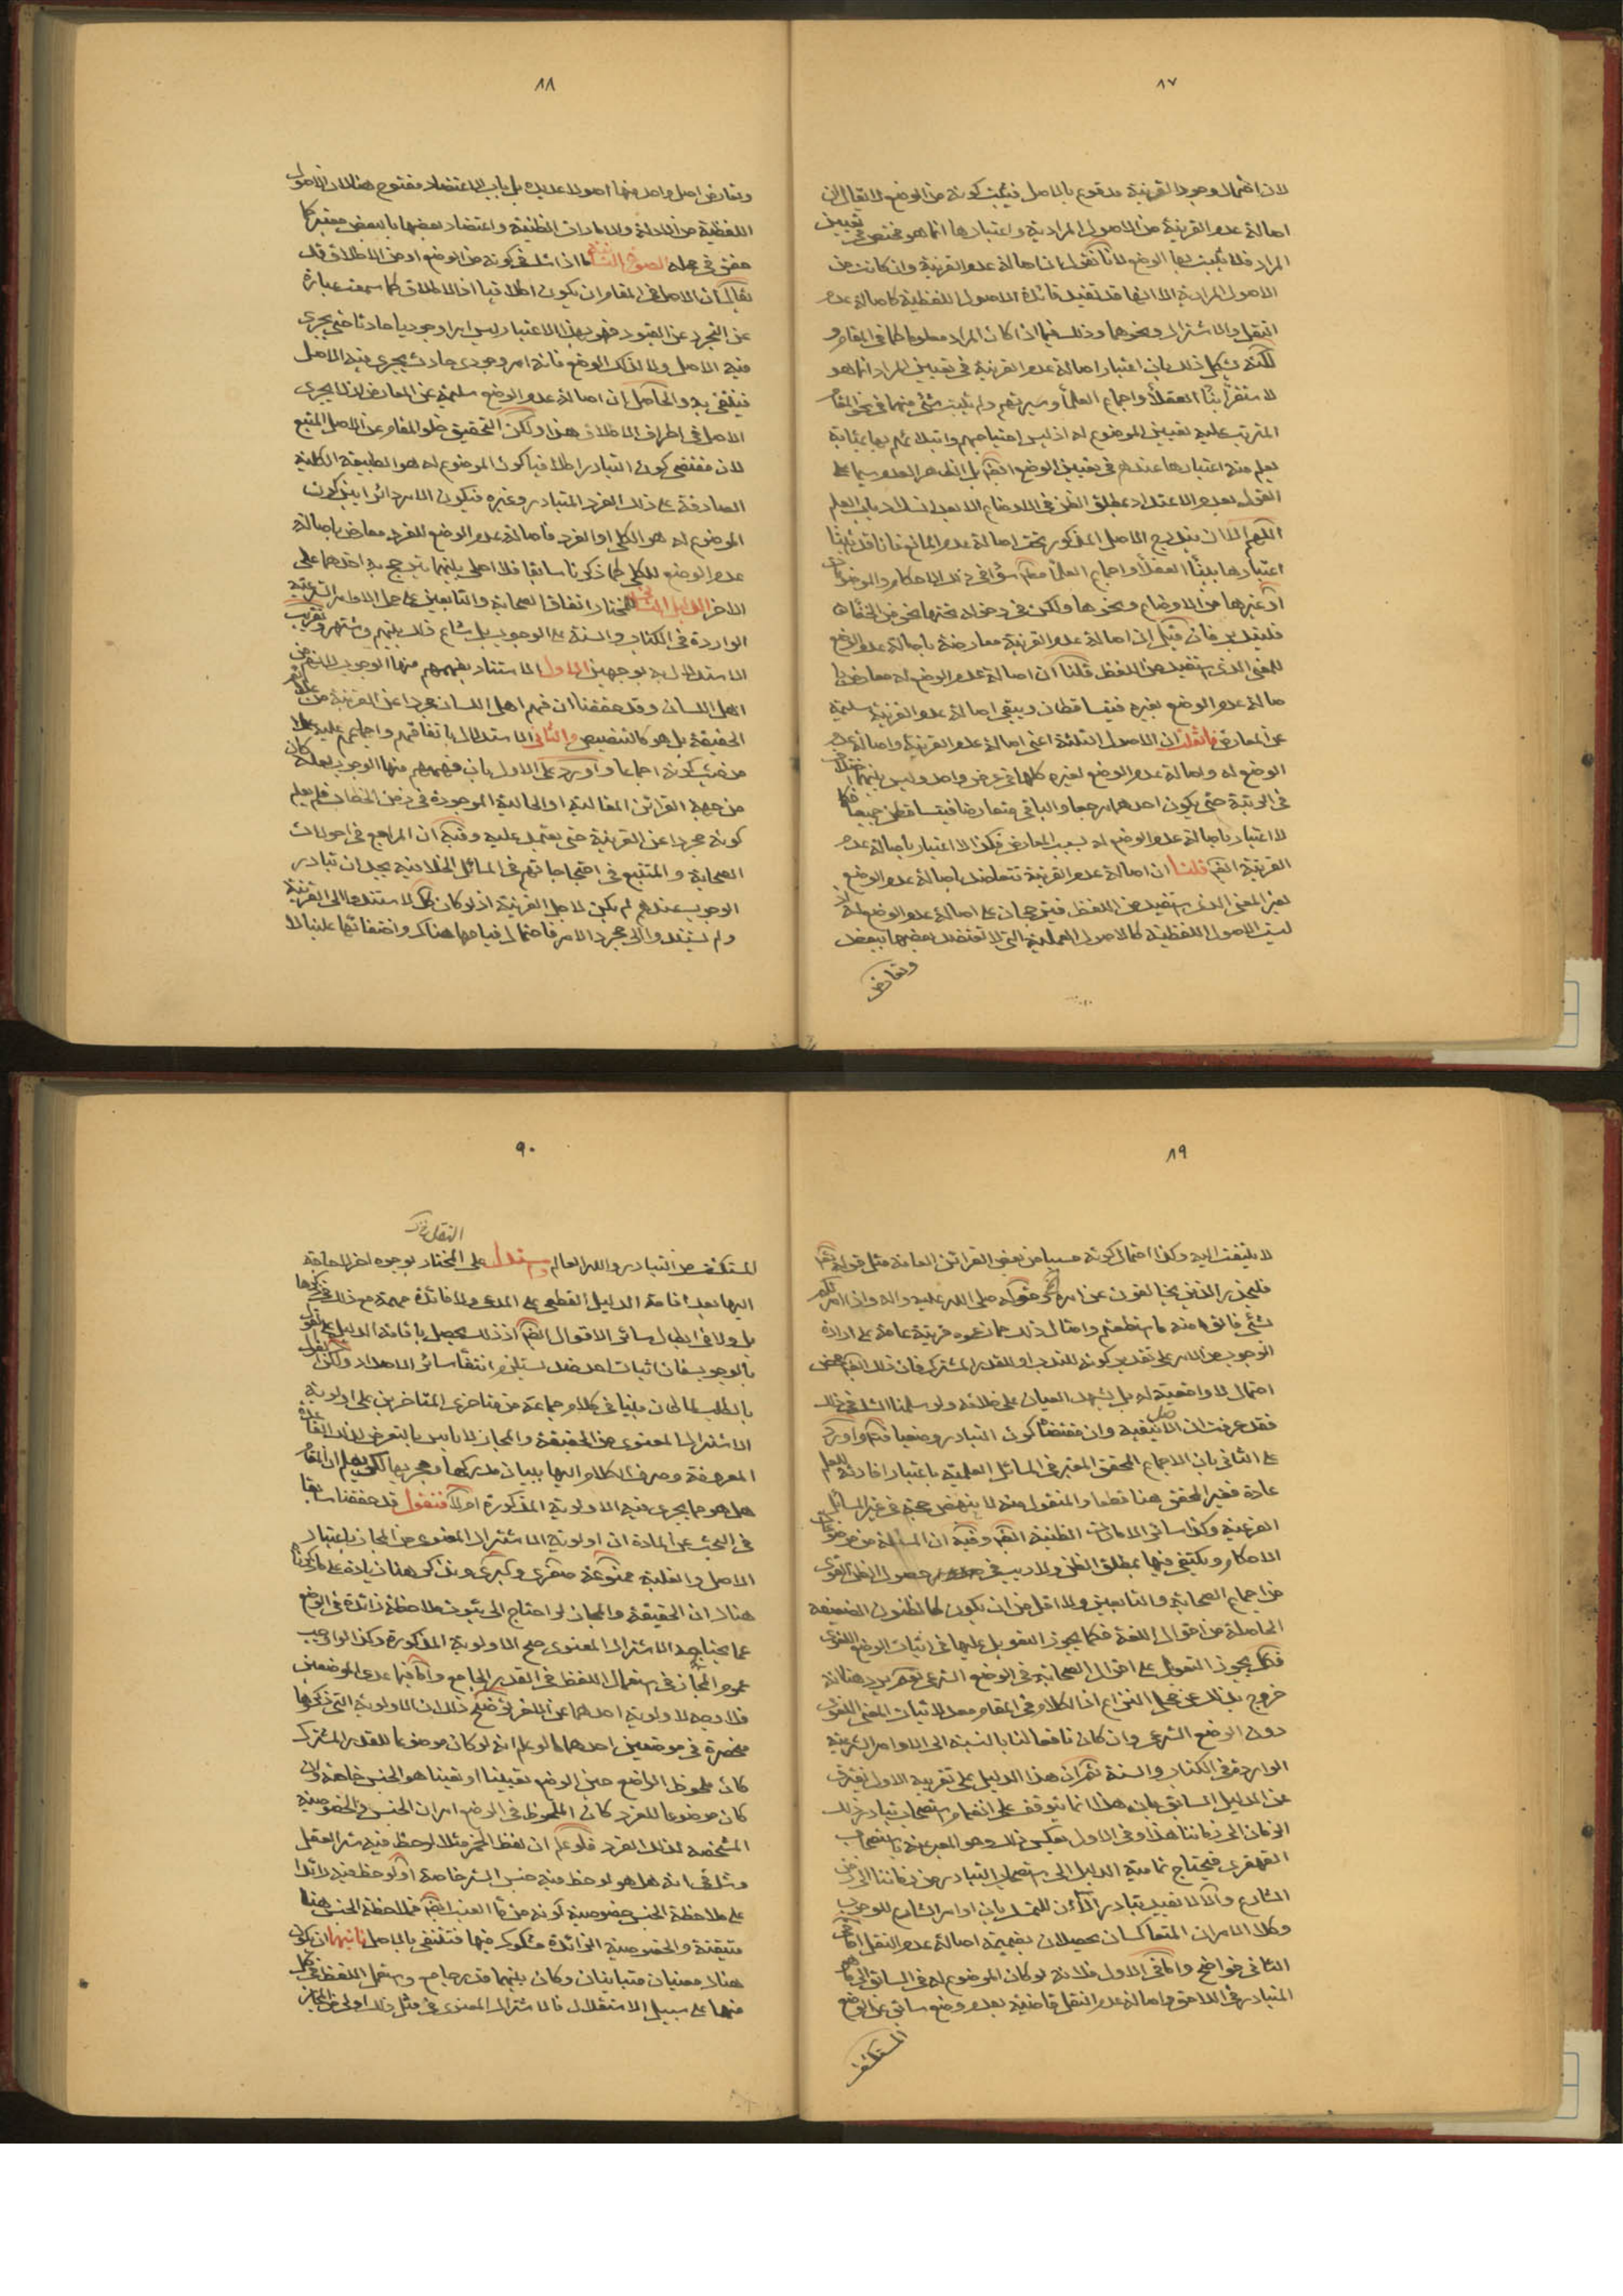 ٨٧
لان احتمال وجود القرينة مدفوع بالاصل فيثبت كونه من الوضع لا يقال ان
اصالة عدم القرينة من الاصول المرادية واعتبارها انما هو مختص في تعيين
المراد فلا يثبت بها الوضع لانا نقول ان اصالة عدم القرينة وان كانت من
الاصول المرادية الا انها قد تفيد فائدة الاصول اللفظية كاصالة عدم
النقل والاشتراك ونحوهما وذلك فيما اذا كان المراد معلوما كما في المقام و
لكنه يشكل ذلك بان اعتبار اصالة عدم القرينة في تعيين المراد انما هو
لاستقرار بناء العقلاء واجماع العلماء وسيرتهم ولم يثبت شئ منها في نحو المقام
المترتب عليه تعيين الموضوع له اذ ليس احتياجهم وابتلائهم بها بمثابة
يعلم منه اعتبارها عندهم في تعيين الوضع ايضا بل الظاهر العدم سيما على
القول بعدم الاعتداد بمطلق الظن في الاوضاع الا بعد انسداد باب العلم
اللهم الا ان يندرج الاصل المذكور تحت اصالة عدم المانع فانا قد بينا
اعتبارها ببناء العقلاء واجماع العلماء مطلقا سواء في ذلك الاحكام والموضوعات
او غيرها من الاوضاع ونحوها ولكن في دخوله تحتها نحو من الخفاء
فليتدبر فان قيل ان اصالة عدم القرينة معارضة باصالة عدم الوضع
للمعنى الذي يستفيد من اللفظ قلنا ان اصالة عدم الوضع له معارض با
صالة عدم الوضع لغيره فيتساقطان ويبقى اصالة عدم القرينة سليمة
عن المعارض فان قلت ان الاصول الثلثة اعني اصالة عدم القرينة واصالة عدم
الوضع له واصالة عدم الوضع لغيره كلها في عرض واحد وليس بينها اختلاف
في الرتبة حتى يكون احدهما مرجعا والباقي متعارضا فيتساقطن جميعا فكما
لا اعتبار باصالة عدم الوضع له بسبب المعارض فكذا لا اعتبار باصالة عدم
القرينة ايضا قلنا ان اصالة عدم القرينة تتعاضد باصالة عدم الوضع
لغير المعنى الذي يستفيد من اللفظ فيترجحان على اصالة عدم الوضع له اذ
ليست الاصول اللفظية كالاصول العملية التي لا تعتضد بعضها ببعض
وتعارض
٨٨
وتعارض اصل واحد منها اصولا عديدة بل باب الاعتضاد مفتوح هنا لان الاصول
اللفظية من الادلة والامارات الظنية واعتضاد بعضها بالبعض معتبر كما
حقق في محله الصورة الثانية ما اذا شك في كونه من الوضع او من الاطلاق قد
يقال ان الاصل في المقام ان يكون اطلاقيا اذ الاطلاق كما سمعت عبارة
عن التجرد عن القيود فهو بهذا الاعتبار ليس امرا وجوديا حادثا حتى يجرى
فيه الاصل ولا كذلك الوضع فانه امر وجودى حادث يجرى فيه الاصل
فينتفى به والحاصل ان اصالة عدم الوضع سليمة عن المعارض اذ لا يجرى
الاصل في طرف الاطلاق هذا ولكن التحقيق خلو المقام عن الاصل المتبع
لان مقتضى كون التبادر اطلاقيا كون الموضوع له هو الطبيعة الكلية
الصادقة على ذلك الفرد المتبادر وغيره فيكون الامر دائرا بين كون
الموضوع له هو الكلى او الفرد فاصالة عدم الوضع للفرد معارض باصالة
عدم الوضع للكلى كما ذكرنا سابقا فلا اصل بينهما يترجح به احدهما على
الاخر الدليل الثاني للمختار اتفاق الصحابة والتابعين على حمل الاوامر الشرعية
الواردة في الكتاب والسنة على الوجوب بل شاع ذلك بينهم واشتهر وتقريب
الاستدلال به بوجهين الاول الاستناد بفهمهم منها الوجوب لانهم من
اهل اللسان وقد حققنا ان فهم اهل اللسان مجردا عن القرينة من علائم
الحقيقة بل هو كالتنصيص والثاني الاستدلال باتفاقهم واجماعهم عليه هذا
من حيث كونه اجماعا واورد على الاول بان فهمهم منها الوجوب لعله كان
من جهة القرائن المقالية او الحالية الموجودة في زمن الخطاب فلم يعلم
كونه مجردا عن القرينة حتى يعتمد عليه وفيه ان المراجع في احوالات
الصحابة والمتتبع في احتجاجاتهم في المسائل الخلافية يجد ان تبادر
الوجوب عندهم لم يكن لاجل القرينة اذ لو كان كك لاستندوا الى القرينة
ولم يستندوا الى مجرد الامر فاحتمال قيامها هناك واختفائها علينا لا
٨٩
لا يلتفت اليه وكذا احتمال كونه مسببا من بعض القرائن العامة مثل قوله تعالى
فليحذر الذين يخالفون عن امره وقوله صلى الله عليه واله واذا امرتكم
بشئ فاتوا منه ما استطعتم وامثال ذلك مما زعموه قرينة عامة على ارادة
الوجوب من الامر على تقدير كونه للندب او للقدر المشترك فان ذلك ايضا محض
احتمال لا واقعية له بل يشهد العيان على خلافه ولو سلمنا الشك في ذلك
فقد عرفت ان الاصل ينفيه وان مقتضاه كون التبادر وضعيا فتم واورد
على الثاني بان الاجماع المحقق المعتبر في المسائل العلمية باعتبار افادته للعلم
عادة فغير المحقق هنا قطعا والمنقول منه لا ينهض حجة في غير المسائل
الفرعية وكذا سائر الامارات الظنية ايضا وفيه ان المسئلة من موضوعات
الاحكام ويكتفى فيها بمطلق الظن ولا ريب في حصول الظن القوى
من اجماع الصحابة والتابعين ولا اقل من ان يكون كالظنون الضعيفة
الحاصلة من اقوال اللغة فكما يجوز التعويل عليها في اثبات الوضع اللغوى
فكك يجوز التعويل على اقوال الصحابة في الوضع الشرعى نعم يرد هنا انه
خروج بذلك عن محل النزاع اذ الكلام في المقام معد لاثبات المعنى اللغوى
دون الوضع الشرعى وان كان نافعا لنا بالنسبة الى الاوامر الشرعية
الواردة في الكتاب والسنة ثم ان هذا الدليل على تقريبه الاول يفترق
عن الدليل السابق بان هذا انما يتوقف على انضمام استصحاب تبادر ذلك
الزمان الى زماننا هذا وفي الاول بعكس ذلك وهو المعبر عنه باستصحاب
القهقرى فيحتاج تمامية الدليل الى استصحاب التبادر من زماننا الى زمن
الشارع والا لا يفيد تبادر الان للتمسك بان اوامر الشارع للوجوب
وكلا الامران المتعاكسان يحصلان بضميمة اصالة عدم النقل اما في
الثاني فواضح واما في الاول فلانه لو كان الموضوع له في السابق الى ما هو
المتبادر في اللاحق واصالة عدم النقل قاضية بعدم وضع سابق عن الوضع
المستكشف
٩٠
النقل
المستكشف من التبادر والله العالم وستدل على المختار بوجوه اخر لا حاجة
اليها بعد اقامة الدليل القطعى على المدعى ولا فائدة مهمة مع ذلك في ذكرها
بل ولا في ابطال سائر الاقوال ايضا اذ ذلك يحصل باقامة الدليل على القول
بالوجوب فان اثبات احد ضد يستلزم انتفاء سائر الاضداد ولكن القول
بالطلب لما كان مبنيا في كلام جماعة من متاخرى المتاخرين على اولوية
الاشتراك المعنوى من الحقيقة والمجاز لا باس بالتعرض لهذه القاعدة
المعروفة وصرف الكلام اليها ببيان مدركها ومجريها لكى يعلم ان المقام
هل هو مما يجرى فيه الاولوية المذكورة ام لا فنقول قد حققنا سابقا
في البحث عن المادة ان اولوية الاشتراك المعنوى من المجاز باعتبار
الاصل والغلبة ممنوعة صغرى وكبرى ونذكر هنا زيادة على ما ذكرنا
هناك ان الحقيقة والمجاز لو احتاج الى ثبوت ملاحظة زائدة في الوضع
عما يحتاجه الاشتراك المعنوى صح الاولوية المذكورة وكذا لو اوجب
عموم المجاز في استعمال اللفظ في القدر الجامع واما فيما عدى الموضعين
فلا وجه لاولوية احدهما عن الاخر توضيح ذلك ان الاولوية التي ذكروها
منحصرة في موضعين احدهما ما لو علم انه لو كان موضوعا للقدر المشترك
كان ملحوظ الواضع حين الوضع تعيينا او تعينا هو الجنس خاصة ولو
كان موضوعا للفرد كان الملحوظ في الوضع امران الجنس والخصوصية
المشخصة لذلك الفرد فلو علم ان لفظ الخمر مثلا لوحظ فيه ستر العقل
وشك في انه هل هو لوحظ فيه جنس الستر خاصة او لوحظ فيه زائدا
على ملاحظة الجنس خصوصية كونه من ماء العنب ايضا فملاحظة الجنس هنا
متيقنة والخصوصية الزائدة مشكوك فيها فتنتفى بالاصل ثانيهما ان يكون
هناك معنيان متباينان وكان بينهما قدر جامع واستعمل اللفظ في كل
منهما على سبيل الاستقلال فالاشتراك المعنوى في مثل ذلك اولى من المجاز